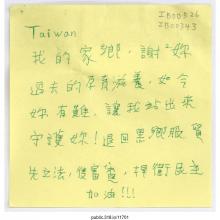 IB00B26
IB00343
Taiwan
我的家鄉,謝謝妳
過去的孕育滋養,如今
妳有難,讓我站出來
守護妳!退回黑箱服貿
先立法,後審查,捍衛民主
加油!!!
public.318.io/11701